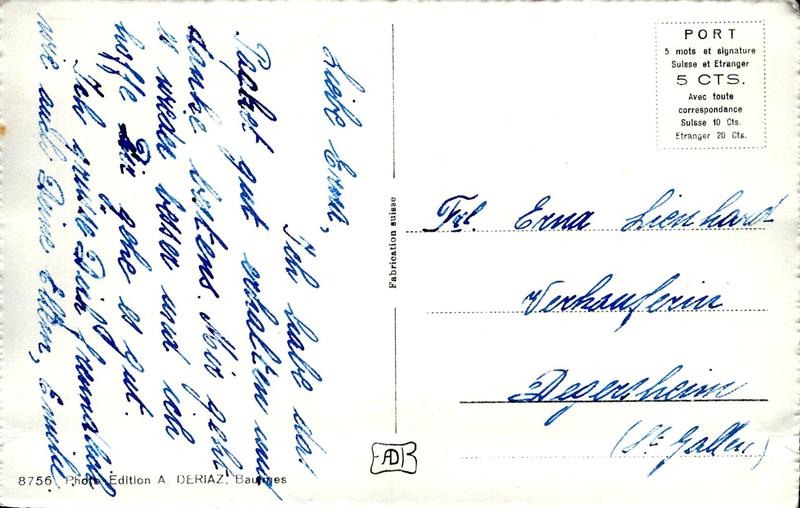 Liebe Erna,
Ich habe das
Packet gut erhalten und
danke bestens. Mir geht
es wieder besser und ich
hoffe Dir gehe es gut.
Ich grüsse Dich freundlich
wie auch Deine Eltern, Emilie.
Fabrication suisse
PORT
5 mots et signature
Suisse et Etranger
5 CTS.
Avec toute
correspondance
Suisse 10 Cts.
Etranger 20 Cts.
Frl. Erna Lienhard
Verkäuferin
Degersheim
(St. Gallen)
AD
8756 Photo Edition A. DERIAZ, Baulmes